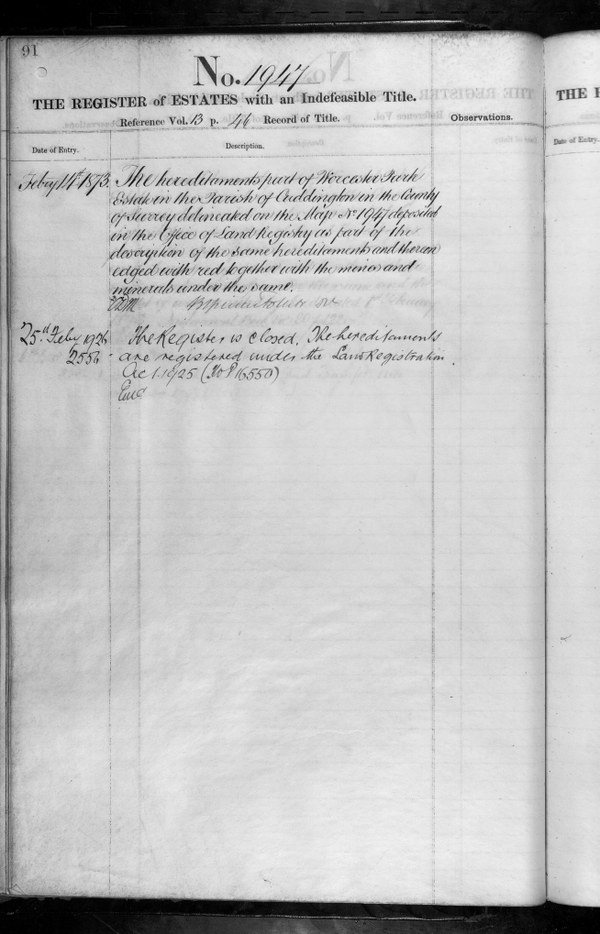 91
No. 1947
THE REGISTER of ESTATES with an Indefeasible Title.
Reference Vol. 13 p. 46 Record of Title.
Observations.
Date of Entry.
Description.
Feby 14th 1873.
The hereditaments part of Worcester Park
Estate in the Parish of Cuddington in the County
of Surrey delineated on the Map No 1947 deposited
in the Office of Land Registry as part of the
description of the same hereditaments and thereon
edged with red together with the mines and
minerals under the same.
25th Feby 1926
2556
The Register is closed. The hereditaments
are registered under the Land Registration
Act 1925 (No P 16550)
THE R
Date of Entry.